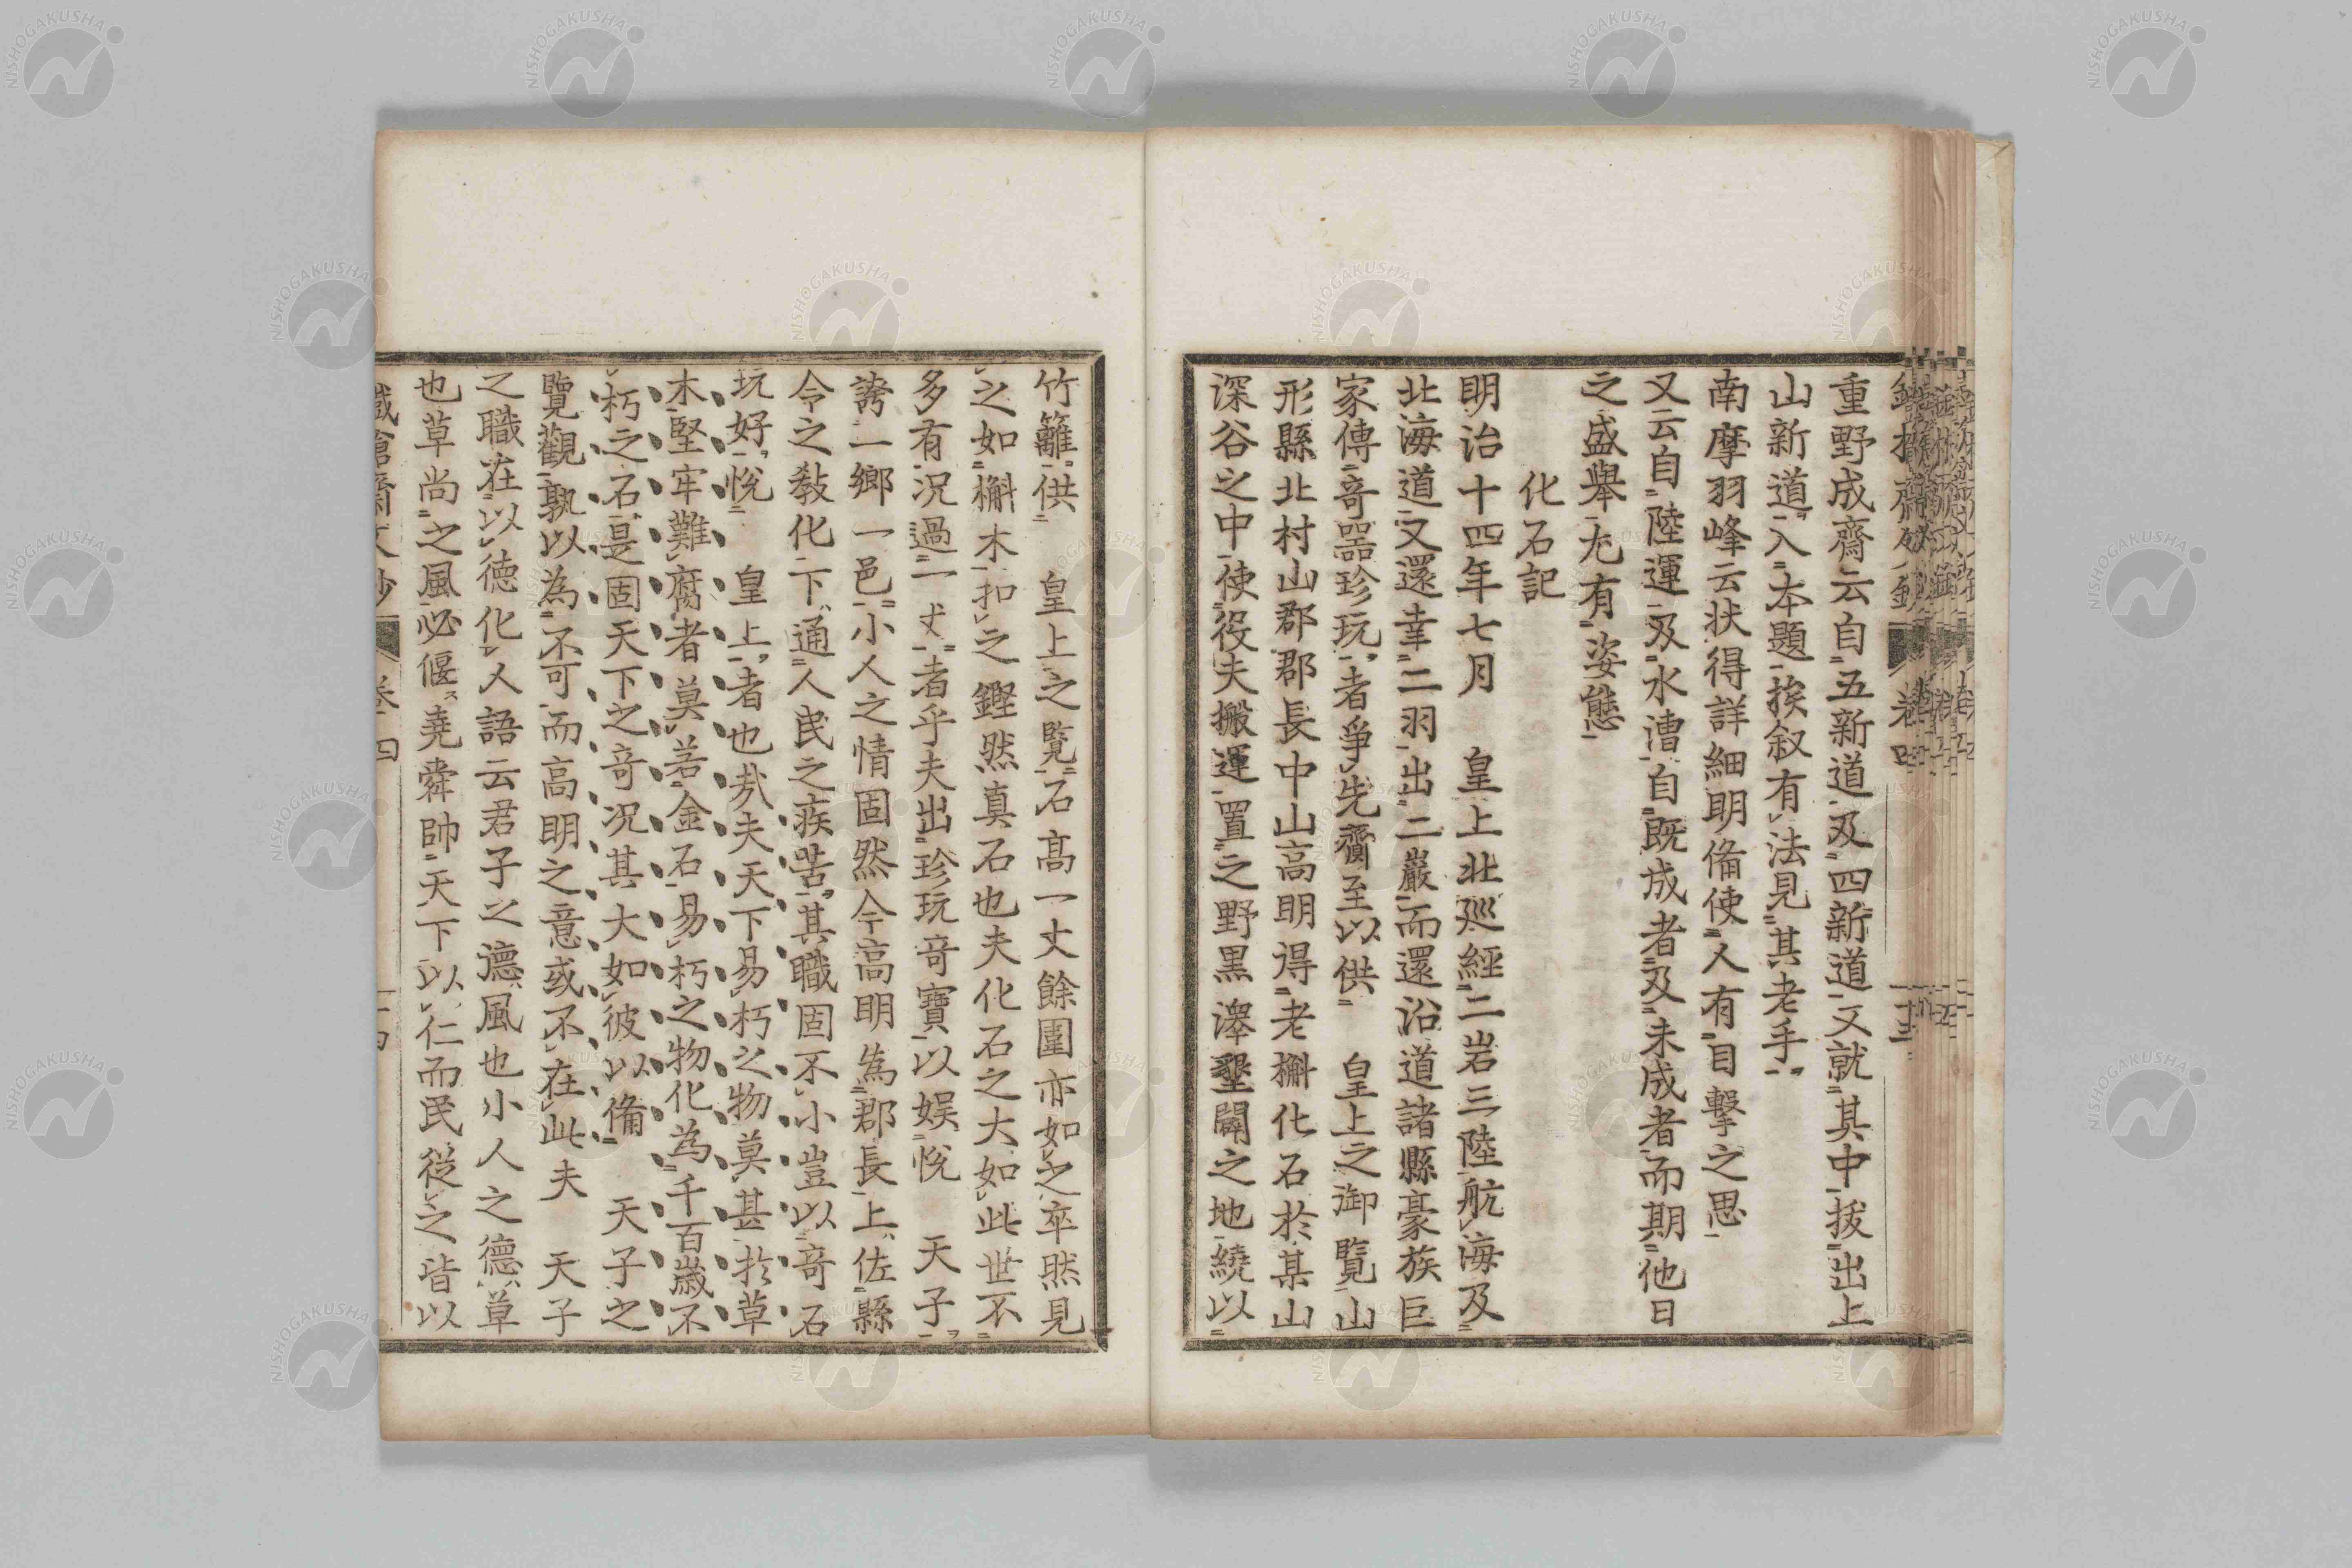 重野成齋云自五新道及四新道文就其中拔出上
山新道入本題挨叙有法見其老手
南摩羽峰云状得詳細明備使人有目擊之思
又云自陸運及水漕自既成者及未成者而期他日
之盛舉尤有姿態
化石記
明治十四年七月 皇上北巡經二岩三陸航海及
北海道又還幸二羽出二巖而還沿道諸縣豪族巨
家傳奇器珍玩者爭先齎至以供 皇上之御覽山
形縣北村山郡郡長中山高明得老檞化石於某山
深谷之中使役夫搬運置之野黒澤墾闢之地繞以
竹籬供 皇上之覽石高一丈餘圍亦如之卒然見
之如檞木扣之鏗然真石也夫化石之大如此世不
多有况過一丈者乎夫出珍玩奇寶以娯悅 天子
誇一鄉一邑小人之情固然今高明為郡長上佐縣
令之敎化下通人民之疾苦其職固不小豈以奇石
玩好悅 皇上者也㢤夫天下易朽之物莫甚於草
木堅牢難腐者莫若金石易朽之物化為千百歲不
朽之石是固天下之奇况其大如彼以備 天子之
覽觀孰以為不可而高明之意或不在此夫 天子
之職在以德化人語云君子之德風也小人之德草
也草尚之風必偃堯舜帥天下以仁而民從之皆以
卷四
NISHOGAKUSHA